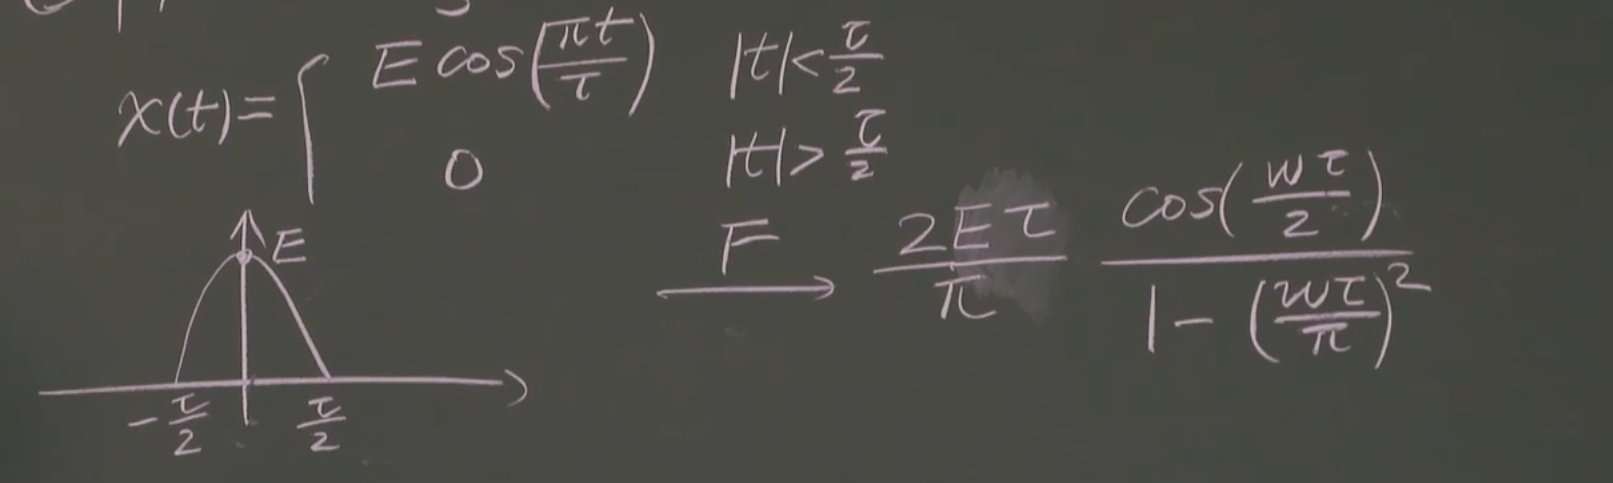 x(t) = { E cos(πt/τ) |t| < τ/2
0 |t| > τ/2
E
-τ/2 τ/2
F → 2Eτ/π cos(wτ/2)/(1 - (wτ/π)²)